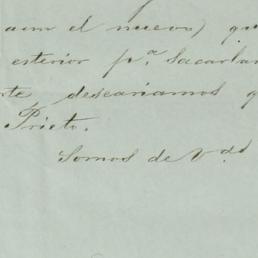 aun el nuevo) qu
esterior p.ª Sacarlan
rte deseariamos q
Prieto.
Somos de V.ds